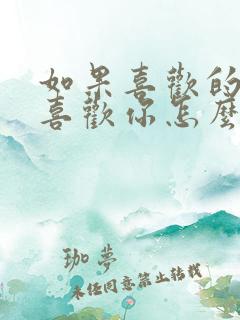 如果喜歡的
喜歡你怎麼
珈夢
未經同意禁止轉載